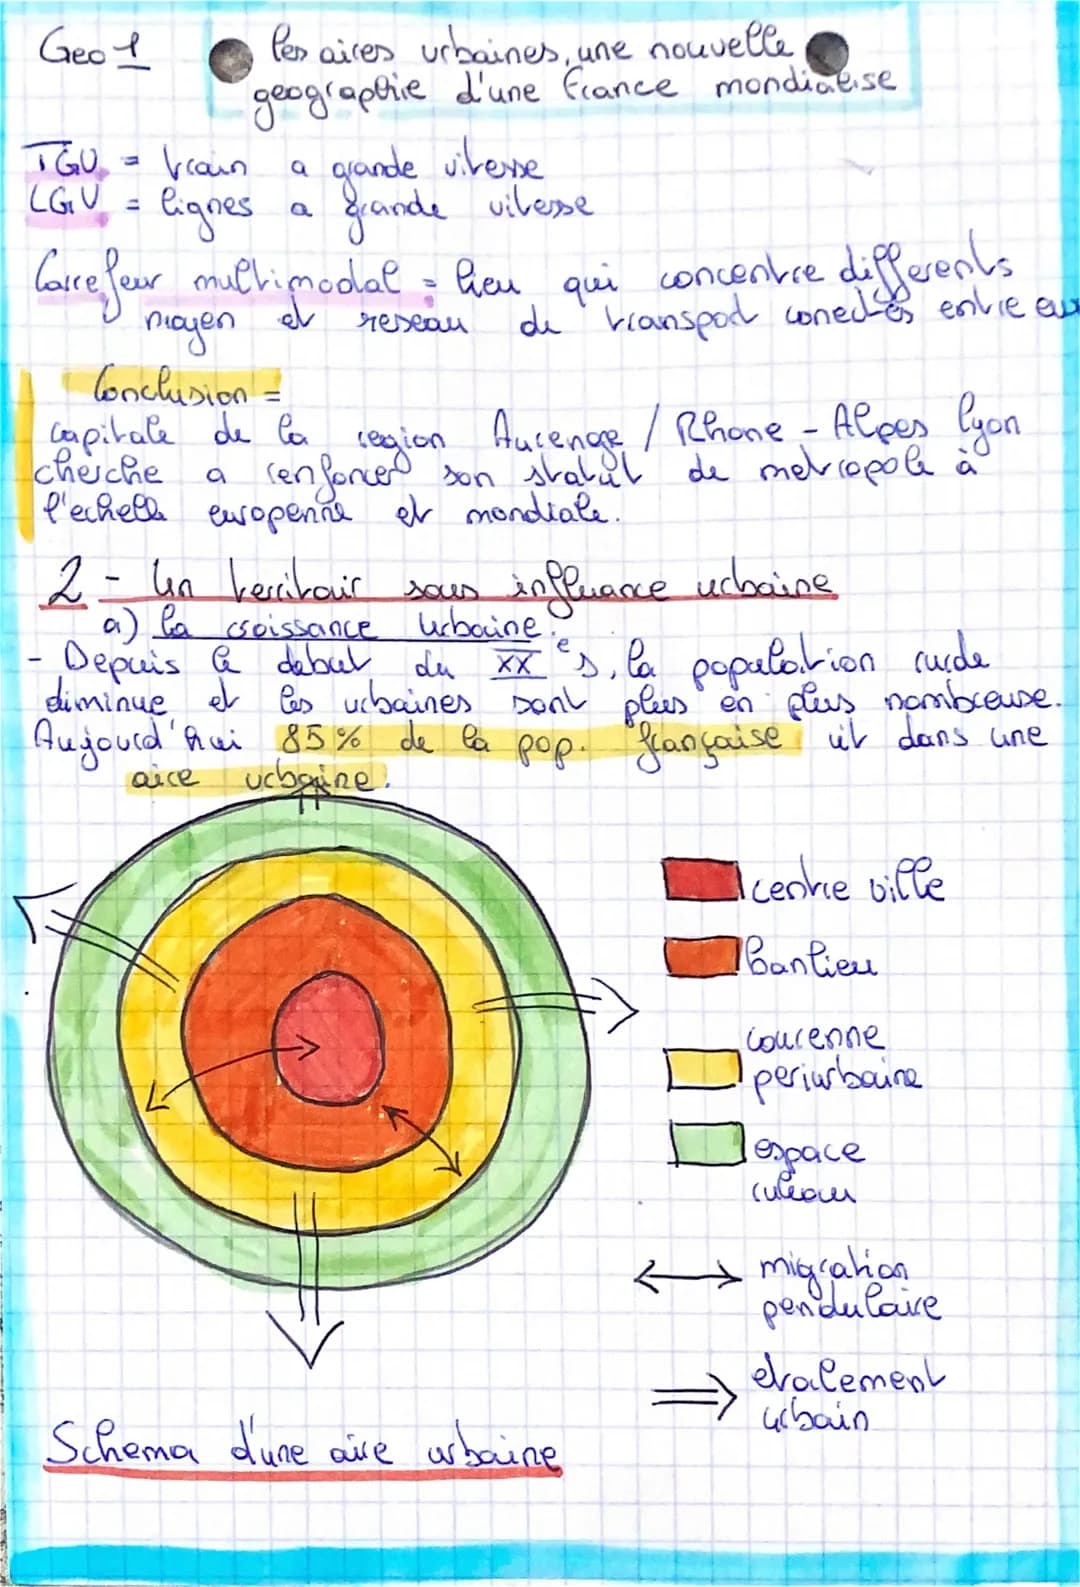 Geo 1
les aires urbaines, une nouvelle
geographie d'une france mondialise
TGV = train a grande vitesse
LGV = lignes a grande vitesse
Carrefour multimodal = lieu qui concentre differents
moyen et reseau de transport conectés entre eux
Conclusion =
capitale de la region Auvergne / Rhone - Alpes lyon
cherche a renforcer son statut de metropole à
l'echelle europenne et mondiale.
2 - Un territoir sous influance urbaine
a) la croissance urbaine.
- Depuis le debut du XXe s, la population rurale
diminue et les urbaines sont plus en plus nombreuse.
Aujourd'hui 85% de la pop. française vit dans une
aire urbaine.
centre ville
Banlieu
courenne
periurbaine
espace
ruleaur
migration
pendulaire
etalement
urbain
Schema d'une aire urbaine